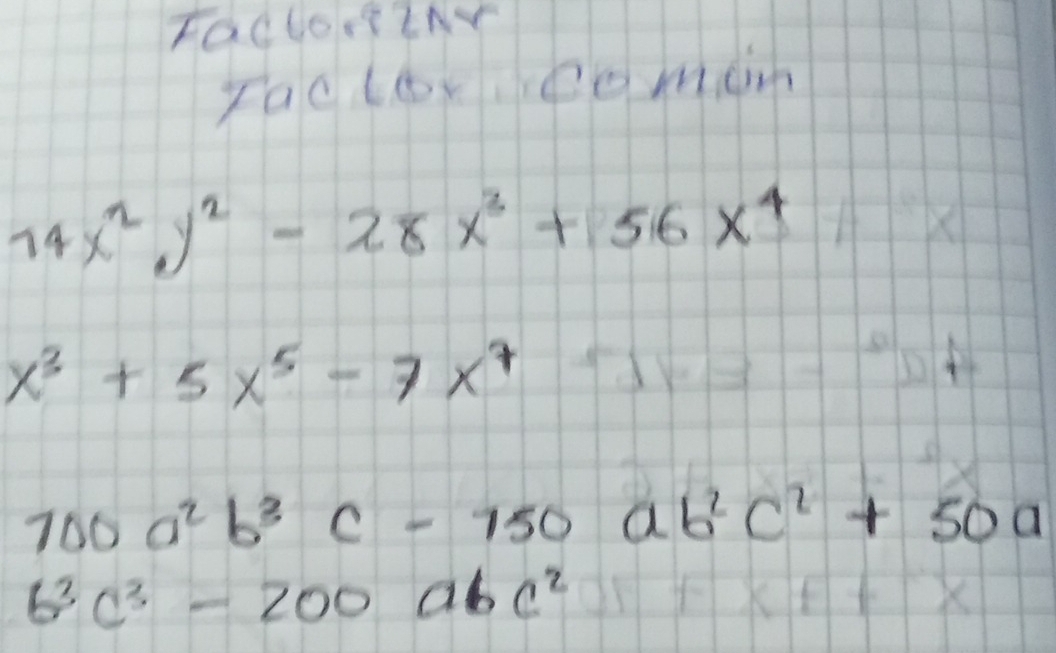 Factorizar
Factor común
14x²y² - 28x³ + 56x⁴
x³ + 5x⁵ - 7x⁷
100a²b³c - 150ab²c² + 50a
b³c³ - 200abc²